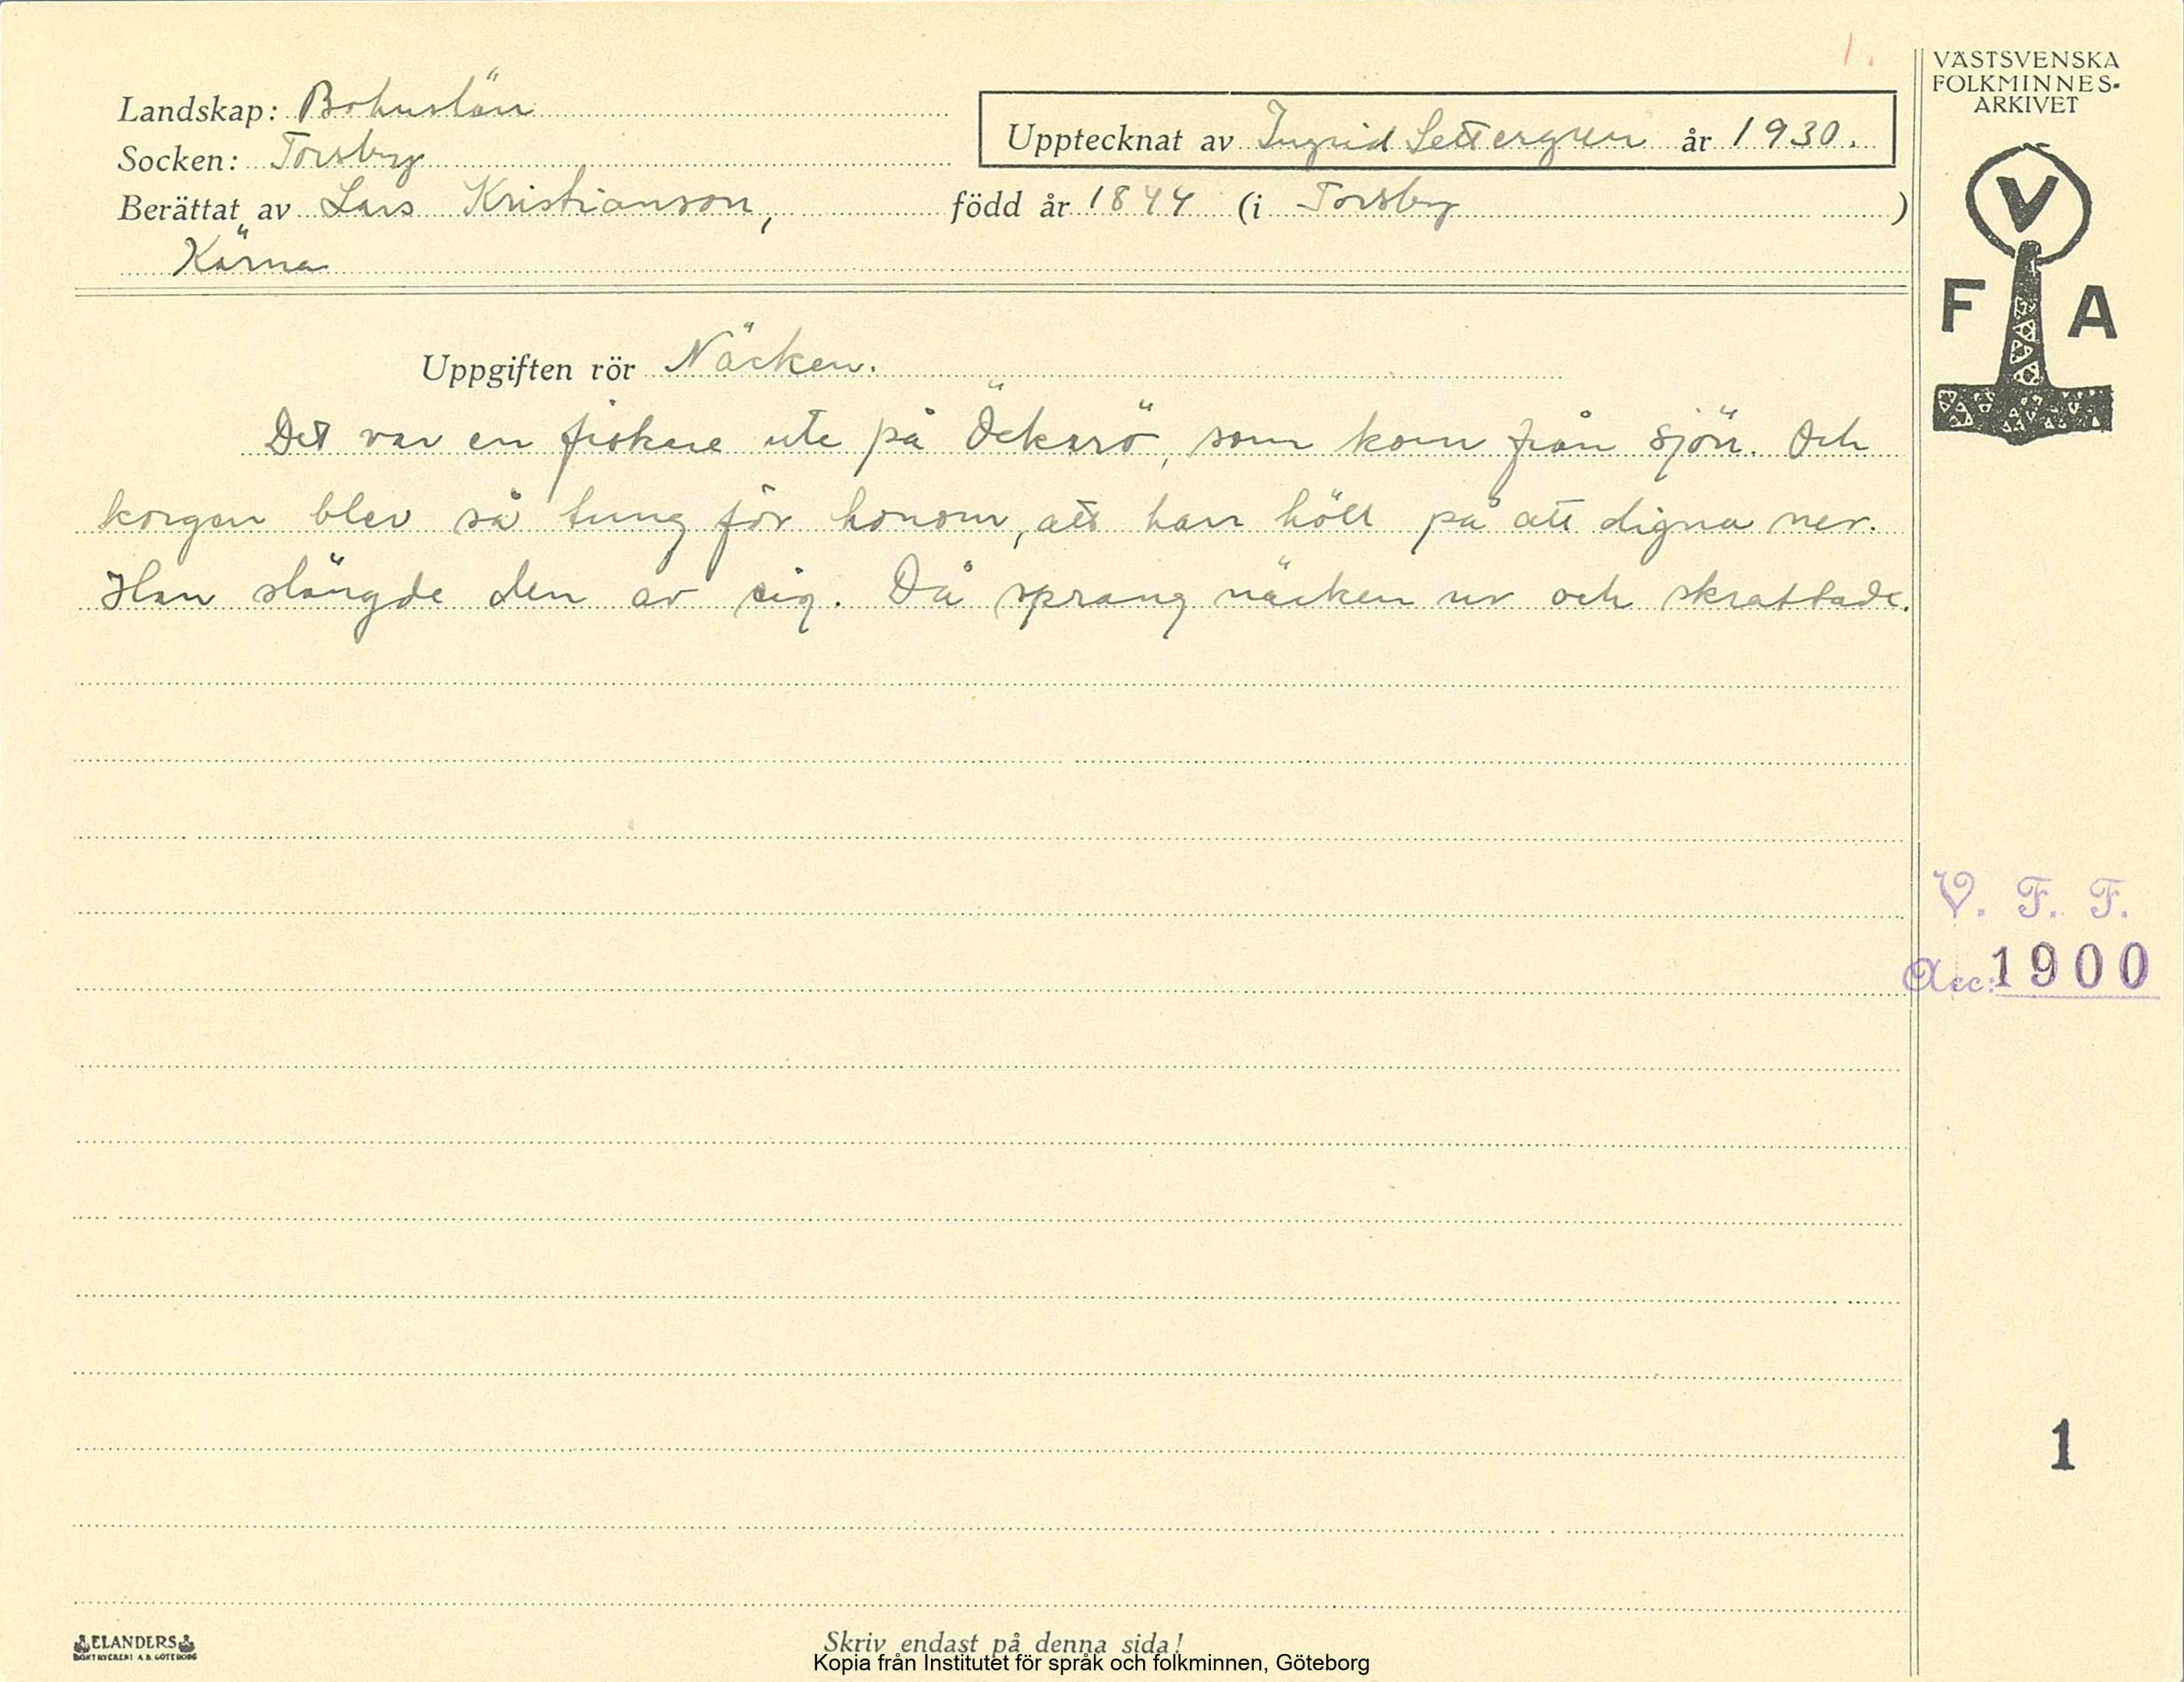 1.
VÄSTSVENSKA
FOLKMINNES-
ARKIVET
Landskap: Bohuslän
Upptecknat av Ingrid Settergren år 1930.
Socken: Torsby
Berättat av Lars Kristianson, född år 1844 (i Torsby)
Kärna
V
F A
Uppgiften rör Näcken.
Det var en fiskare ute på Öckerö, som kom från sjön. Och
korgen blev så tung för honom, att han höll på att digna ner.
Han slängde den av sig. Då sprang näcken ur och skrattade.
V. F. F.
Acc: 1900
1
ELANDERS
BOKTRYCKERI A.B. GÖTEBORG
Skriv endast på denna sida!
Kopia från Institutet för språk och folkminnen, Göteborg